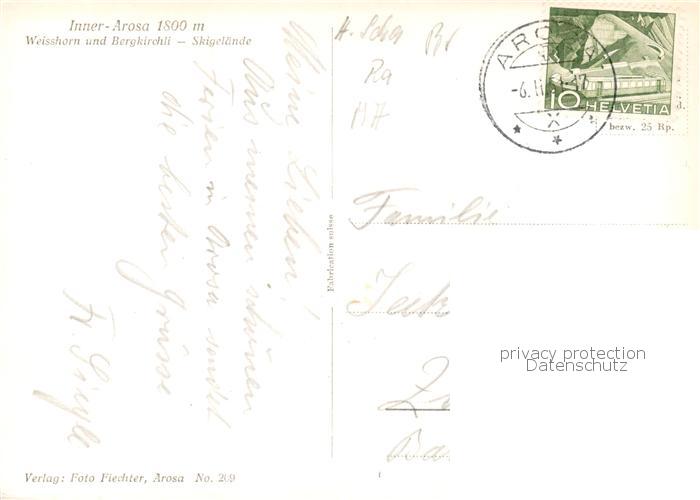 Inner-Arosa 1800 m
Weisshorn und Bergkirchli — Skigelände
Meine Lieben!
Aus meinen schönen
Ferien in Arosa sendet
die besten Grüsse
Fr.
Fabrication suisse
AROSA
-6.II.
X
10 HELVETIA
d.
bezw. 25 Rp.
Familie
privacy protection
Datenschutz
Verlag: Foto Fiechter, Arosa No. 209